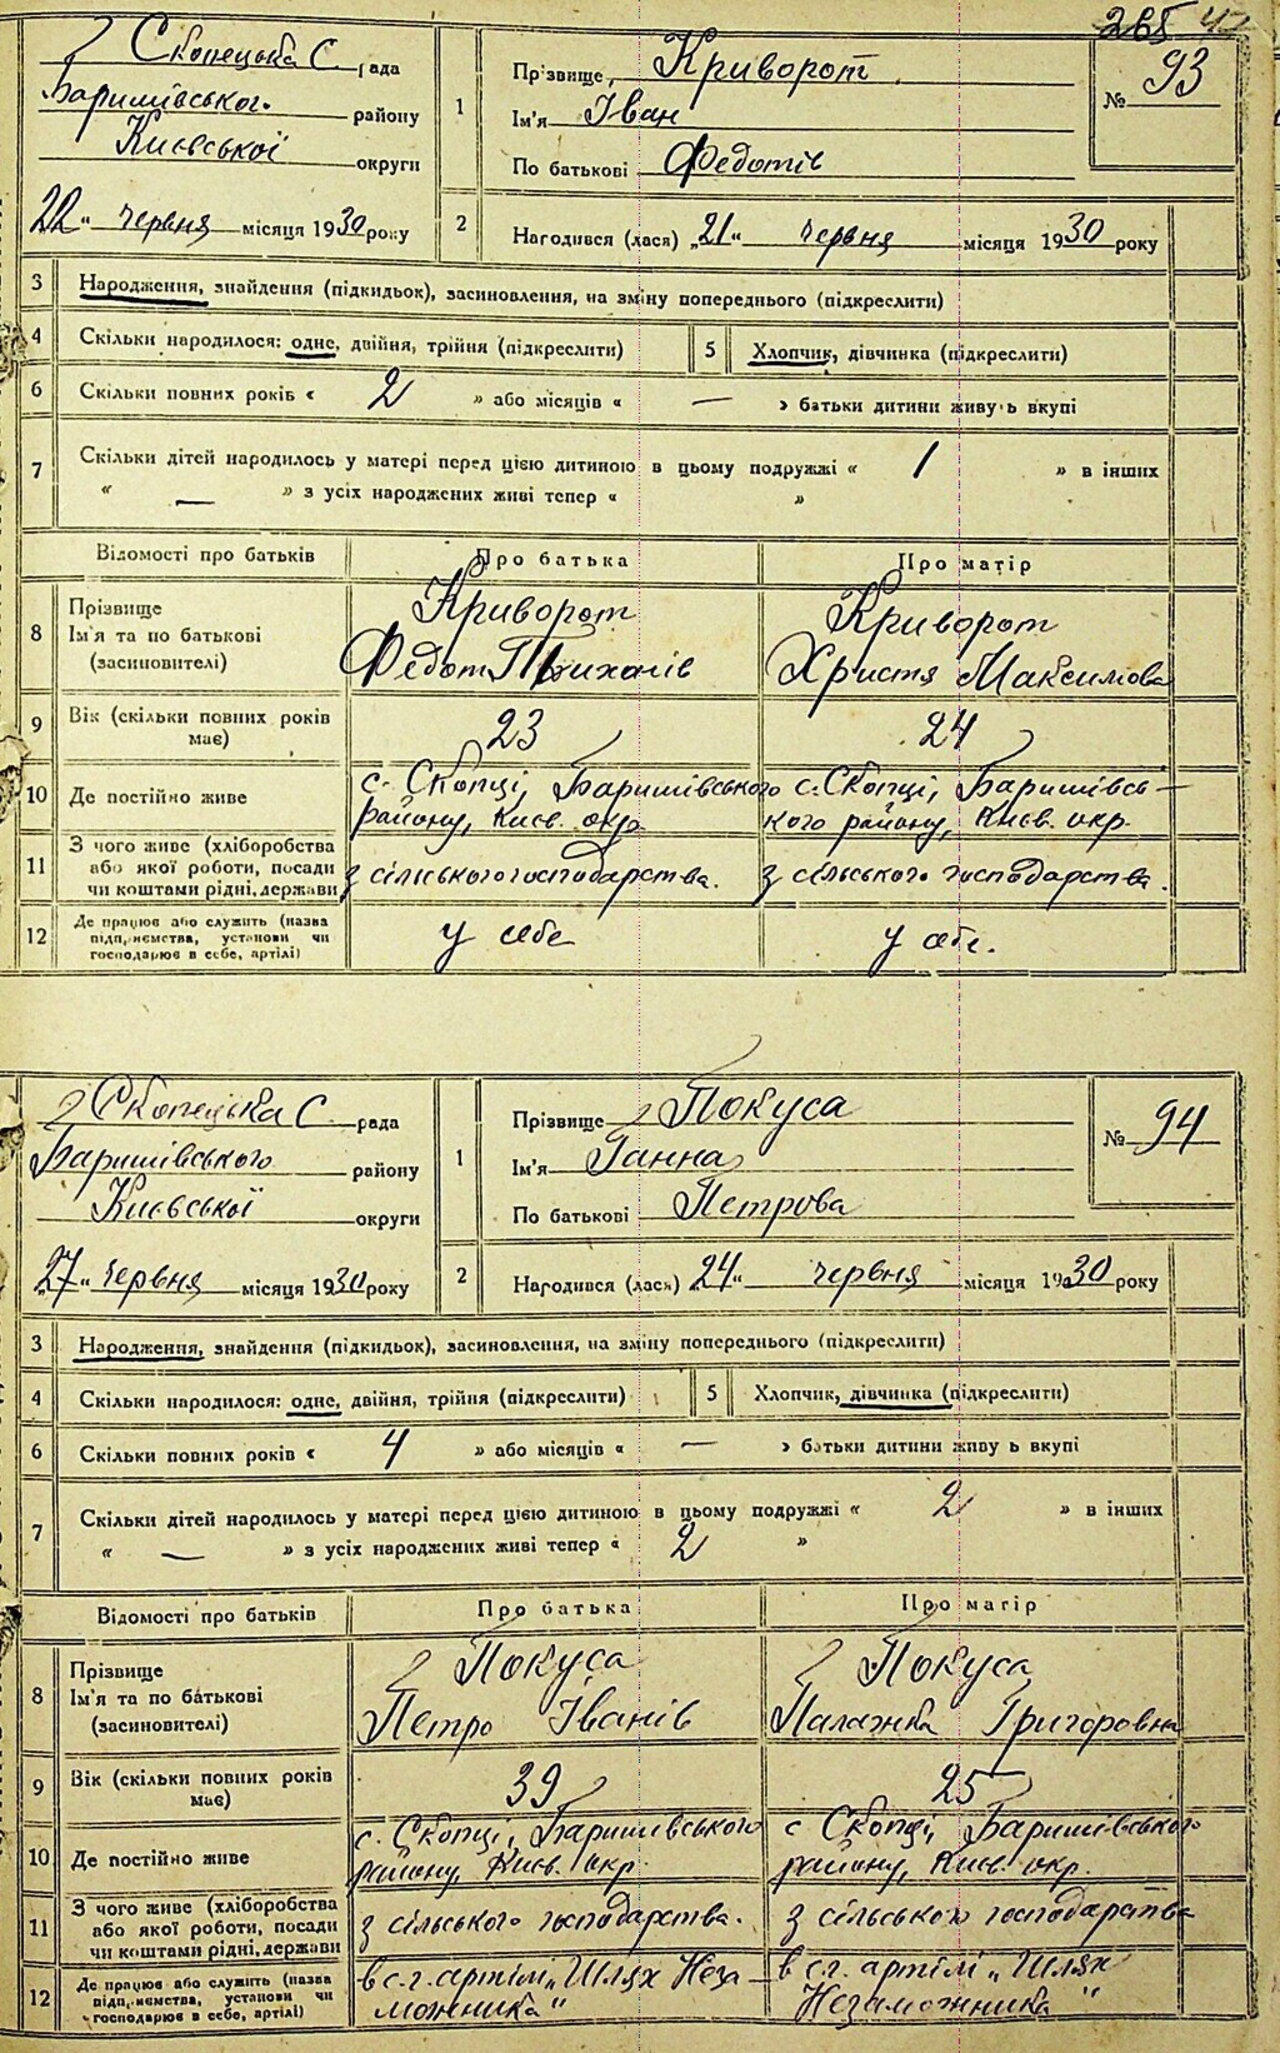 265 42
Скопецька С. рада
Баришівського району
Київської округи
22 червня місяця 1930 року
1 Прізвище Криворот
Ім'я Іван
По батькові Федотів
№ 93
2 Народився (лася) „21“ червня місяця 1930 року
3 Народження, знайдення (підкидьок), засиновлення, на зміну попереднього (підкреслити)
4 Скільки народилося: одне, двійня, трійня (підкреслити) 5 Хлопчик, дівчинка (підкреслити)
6 Скільки повних років « 2 » або місяців « — » батьки дитини живуть вкупі
7 Скільки дітей народилось у матері перед цією дитиною в цьому подружжі « 1 » в інших
« — » з усіх народжених живі тепер « »
Відомості про батьків Про батька Про матір
8 Прізвище Ім'я та по батькові (засиновителі)
Криворот Криворот
Федот Христя Максимова
9 Вік (скільки повних років має) 23 24
10 Де постійно живе
с. Скопці, Баришівського с. Скопці, Баришівсь-
району, Київ. окр. кого району, Київ. окр.
11 З чого живе (хліборобства або якої роботи, посади чи коштами рідні, держави
з сільського господарства. з сільського господарства.
12 Де працює або служить (назва підприємства, установи чи господарює в себе, артілі)
у себе у себе.
Скопецька С. рада
Баришівського району
Київської округи
„27“ червня місяця 1930 року
1 Прізвище Покуса
Ім'я Ганна
По батькові Петрова
№ 94
2 Народився (лася) „24“ червня місяця 1930 року
3 Народження, знайдення (підкидьок), засиновлення, на зміну попереднього (підкреслити)
4 Скільки народилося: одне, двійня, трійня (підкреслити) 5 Хлопчик, дівчинка (підкреслити)
6 Скільки повних років « 4 » або місяців « — » батьки дитини живуть вкупі
7 Скільки дітей народилось у матері перед цією дитиною в цьому подружжі « 2 » в інших
« — » з усіх народжених живі тепер « 2 »
Відомості про батьків Про батька Про матір
8 Прізвище Ім'я та по батькові (засиновителі)
Покуса Покуса
Петро Іванів Палажка Григоровна
9 Вік (скільки повних років має) 39 25
10 Де постійно живе
с. Скопці, Баришівського с Скопці, Баришівського
району, Київ. окр. району, Київ. окр.
11 З чого живе (хліборобства або якої роботи, посади чи коштами рідні, держави
з сільського господарства. з сільського господарства
12 Де працює або служить (назва підприємства, установи чи господарює в себе, артілі)
в с.г. артілі „Шлях Неза- в с.г. артілі „Шлях
можника“ Незаможника“